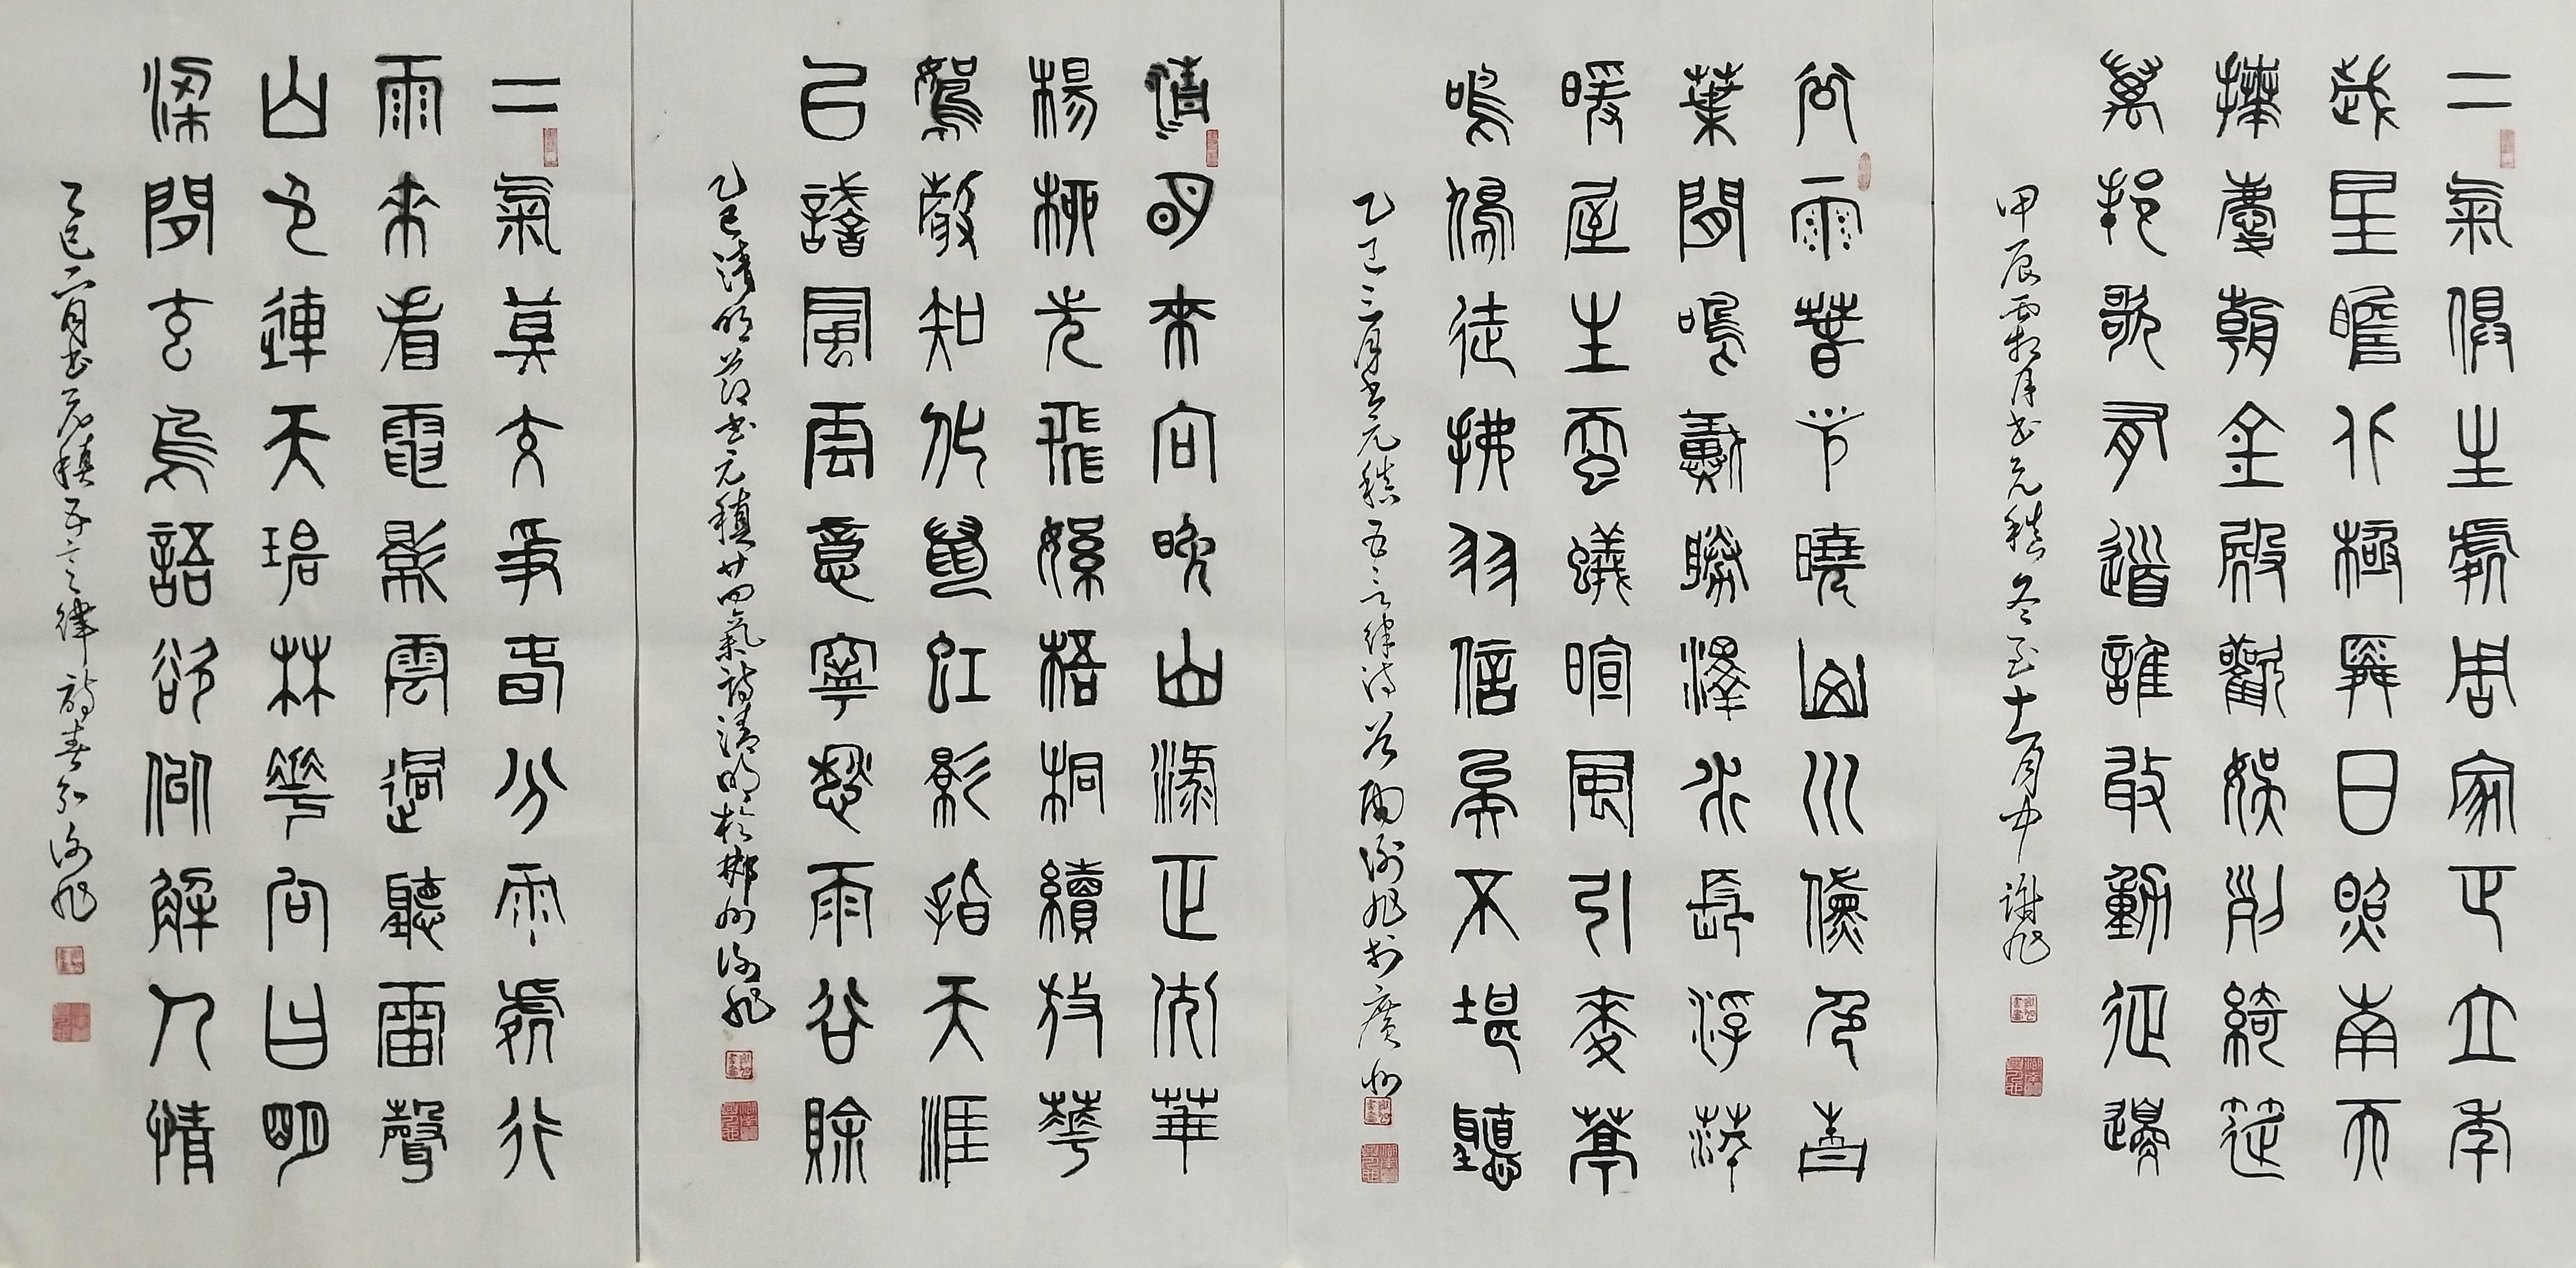 二氣俱生處周家正立年
歲星瞻北極舜日照南天
拜慶朝金殿歡娛列綺筵
萬邦歌有道誰敢動征邊
甲辰霜月書元稹冬至十一月中 謝旭
谷雨春光曉山川黛色青
葉間鳴戴勝澤水長浮萍
暖屋生蠶蟻暄風引麥葶
鳴鳩徒拂羽信矣不堪聽
乙巳三月書元稹五言律詩谷雨謝旭於廣州
清明來向晚山淥正光華
楊柳先飛絮梧桐續放華
鴽聲知化鼠虹影指天涯
已識風雲意寧愁雨谷賒
乙巳清明節書元稹廿四氣詩清明於郴州謝旭
二氣莫交爭春分雨處行
雨來看電影雲過聽雷聲
山色連天碧林華向日明
梁間玄鳥語欲似解人情
乙巳二月書元稹五言律詩春分謝旭